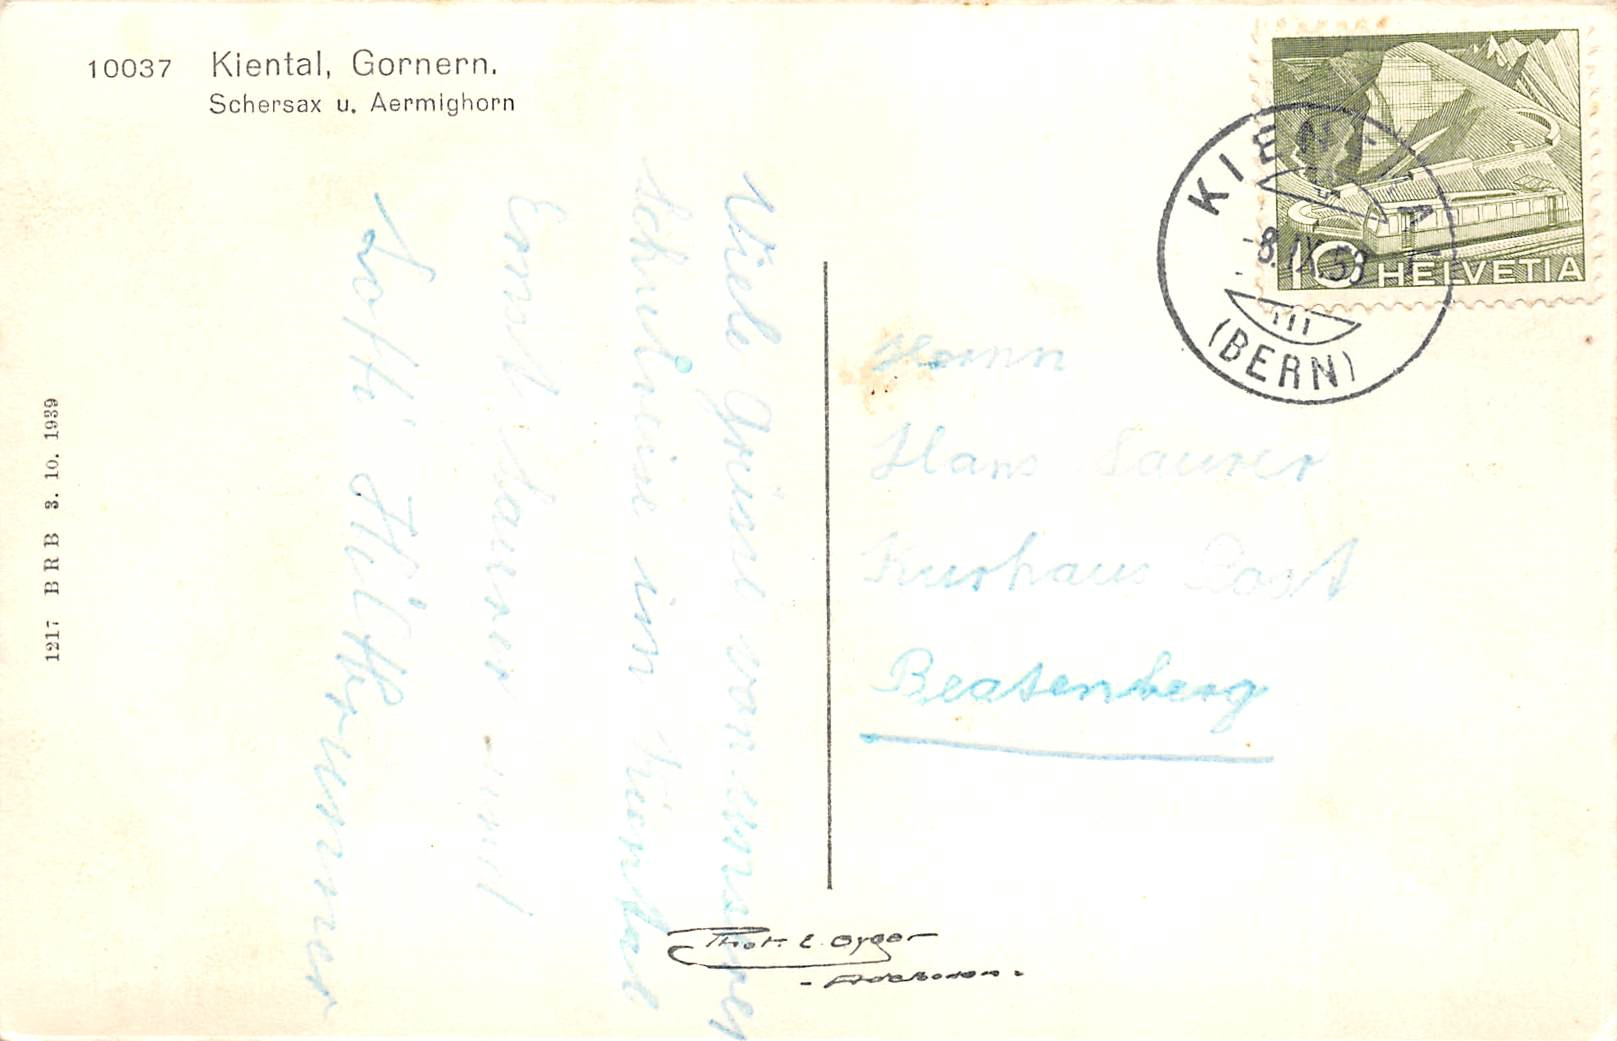 10037 Kiental, Gornern.
Schersax u. Aermighorn
1217 BRB 3. 10. 1939
KIENTAL
-8.IX.53
(BERN)
10 HELVETIA
Viele Grüsse von unserer
Schulreise im Kiental
Ernst Saurer und
Lotti
Herrn
Hans Saurer
Kurhaus Post
Beatenberg
Phot. E. Gyger
- Adelboden -